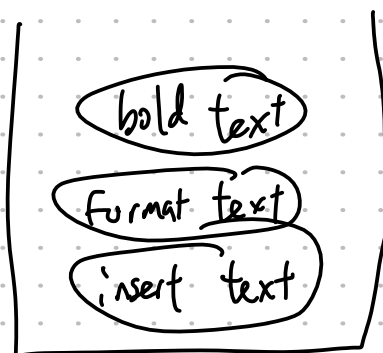 bold text
Format text
insert text